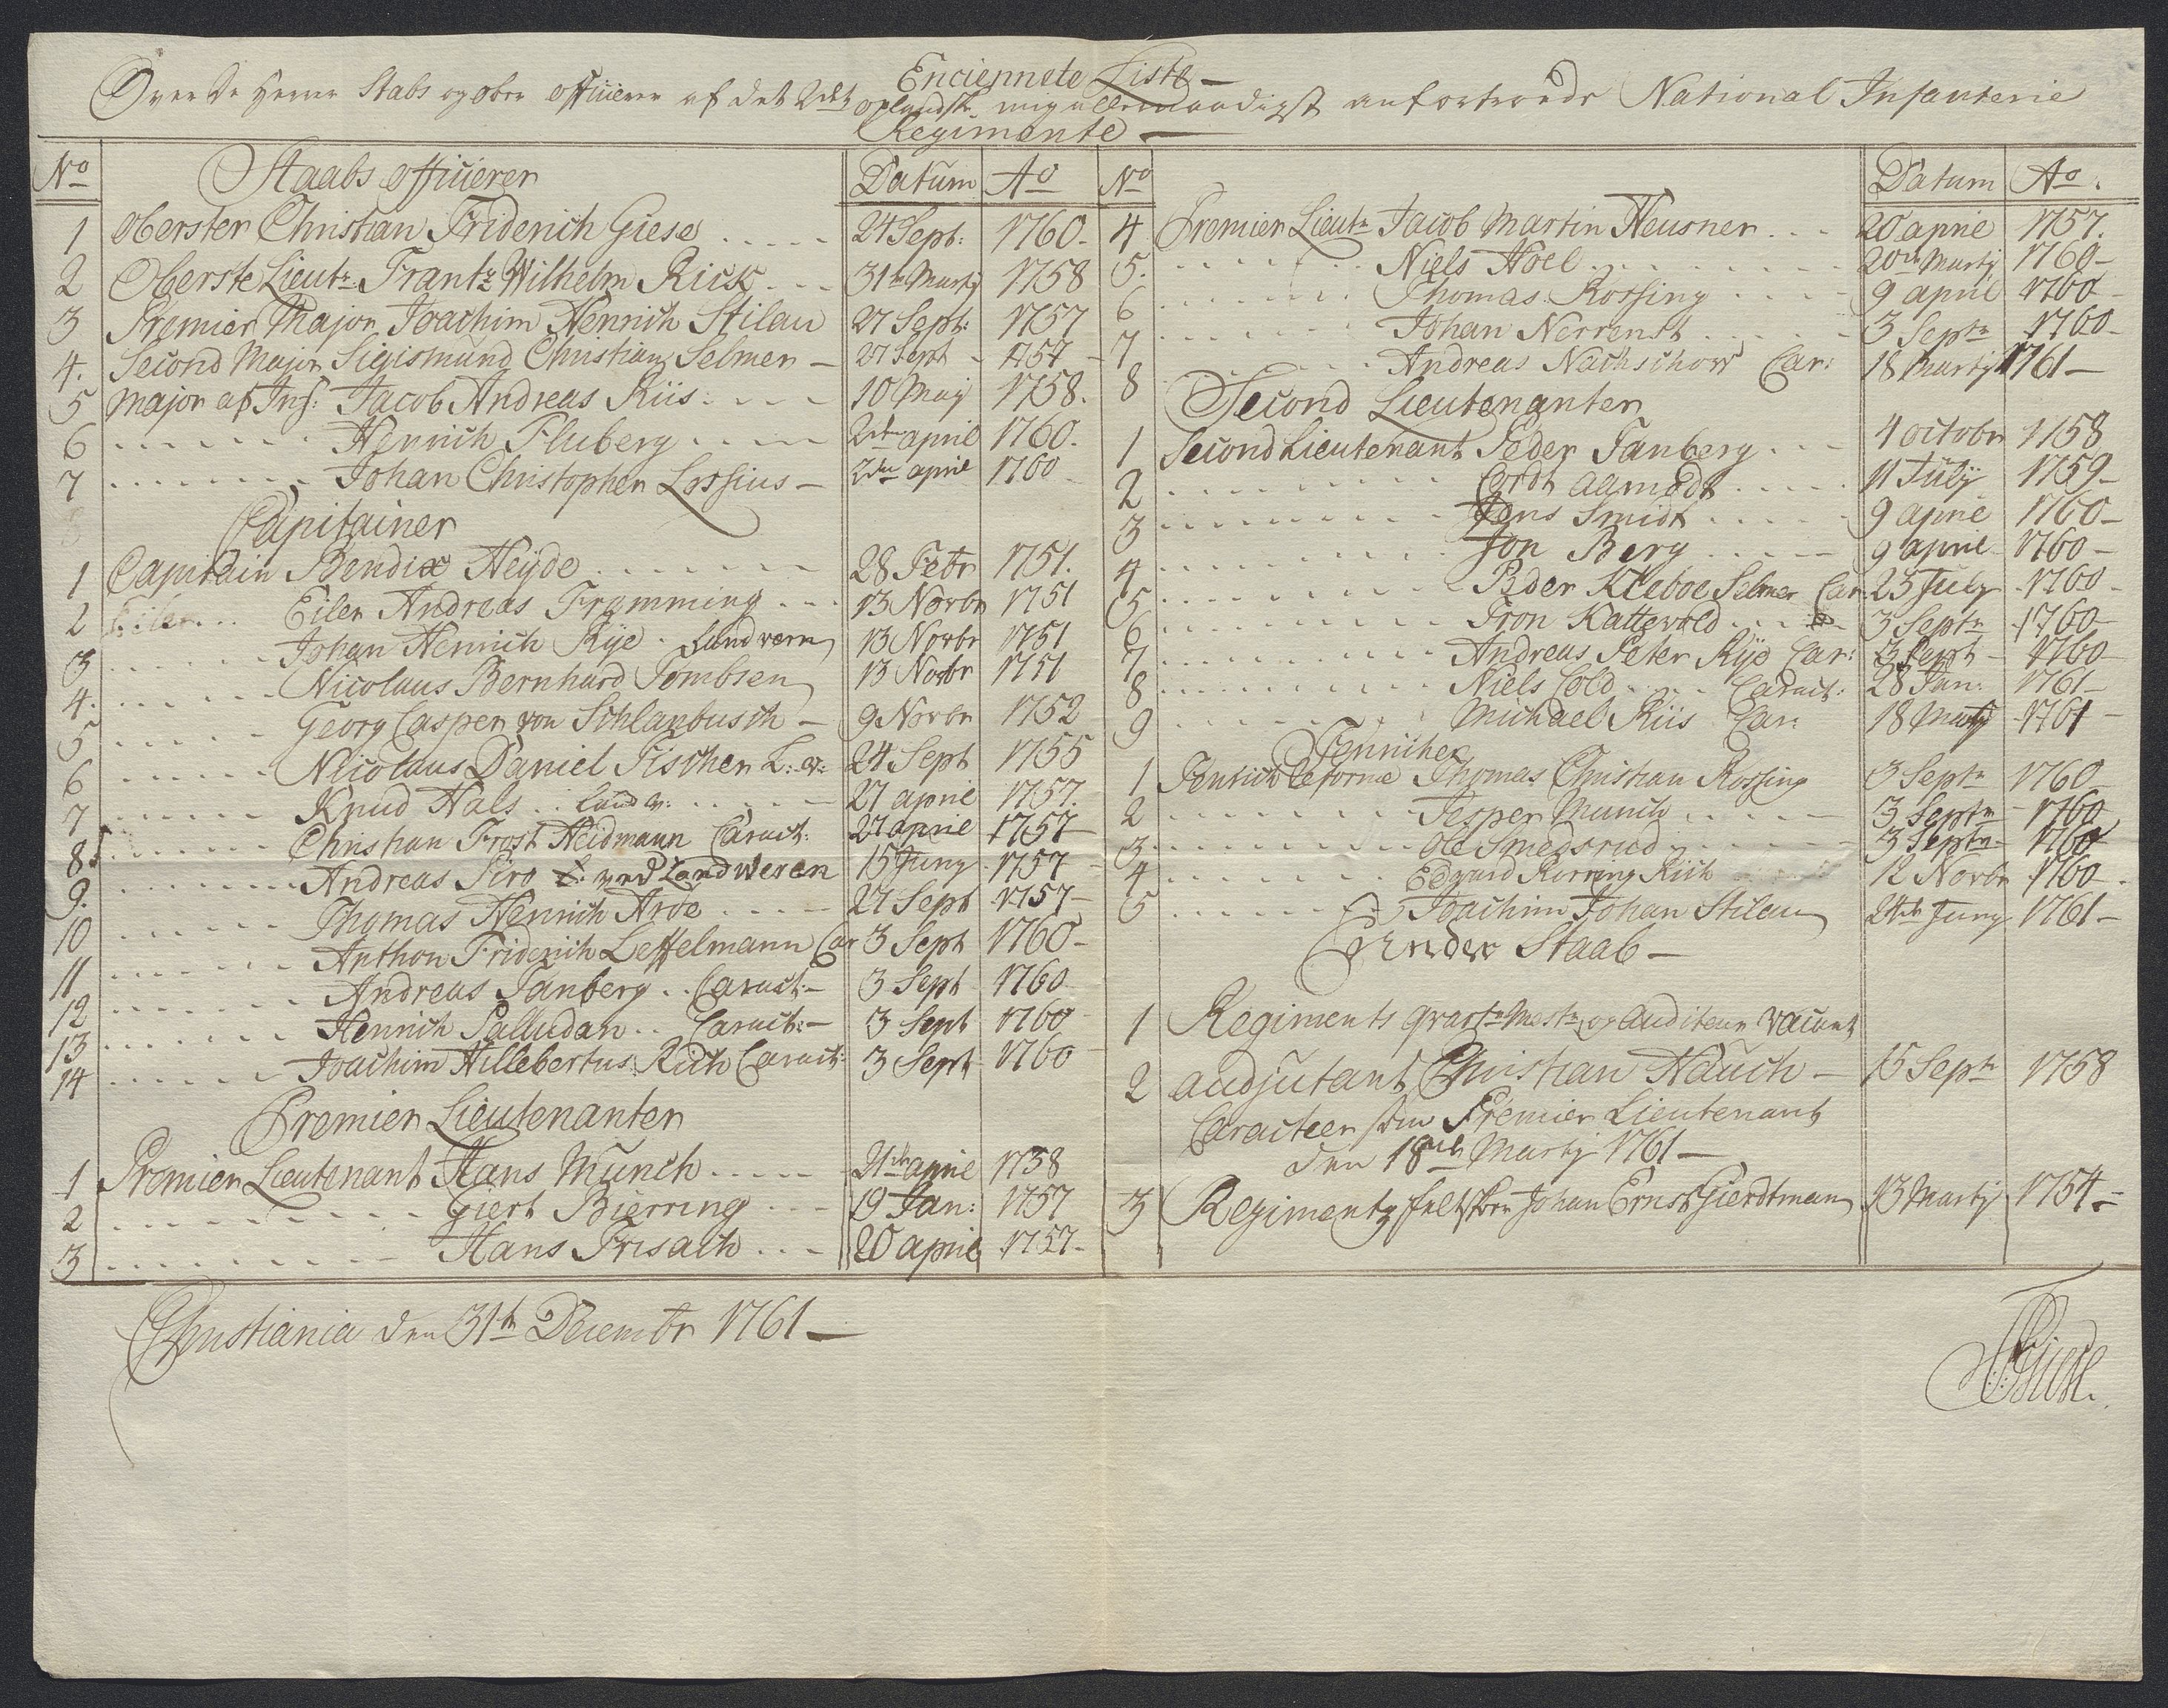 Enciennete Liste
Over de Herrer Stabs og ober officerer af det 2det oplandske mig allernaadigst anfortroede National Infanterie
Regimente
No Staabs officierer Datum Ao
1 Obersten Christian Friderich Giese 24 Sept: 1760
2 Oberste Lieutn Frantz Wilhelm Rick 31te Martj 1758
3 Premier Major Joachim Henrich Stilau 27 Sept: 1757
4. Second Major Sigismund Christian Selmer 27 Sept 1757
5 Major af Inf: Jacob Andreas Riis 10 Maj 1758.
6 Henrich Fluberg 2den april 1760.
7 Johan Christopher Lossius 2den april 1760
Capitainer
1 Capitain Bendix Heyde 28 Febr 1751.
2 Eiler Andreas Fromming 13 Novbr 1751
3 Johan Henrich Rye Landvern 13 Novbr 1751
4. Nicolaus Bernhard Tombsen 13 Novbr 1751
5 Georg Casper von Schlanbusch 9 Novbr 1752
6 Nicolaus Daniel Fischer L: v: 24 Sept 1755
7 Knud Hals Land v: 27 april 1757.
8 Christian Frost Heidmann Caract: 27 april 1757
9. Andreas Piro ved Landveren 15 Juny 1757
10 Thomas Henrich Arve 27 Sept 1757
11 Anthon Friderich Leffelmann Car 3 Sept 1760
12 Andreas Tanberg Caract: 3 Sept 1760
13 Henrich Palludan Caract: 3 Sept 1760
14 Joachim Hillebertus Rich Caract: 3 Sept 1760
Premier Lieutenanter
1 Premier Lieutenant Hans Munch 21de april 1738
2 Giert Bierring 19 Jan: 1757
3 Hans Frisach 20 april 1757
No Datum Ao.
4 Premier Lieutn Jacob Martin Heusner 20 april 1757.
5. Niels Hoel 20de Martj 1760
6 Thomas Rossing 9 april 1760
7 Johan Nerrenst 3 Septr 1760
8 Andreas Nachschow Car: 18 Martj 1761
Second Lieutenanter
1 Second Lieutenant Peder Tanberg 4 octobr 1758
2 Cordt Aamodt 11 July 1759
3 Jens Smidt 9 april 1760
4 Jon Berg 9 april 1760
5 Peder Kleboe Selmer Car 25 July 1760
6 Tron Kattevold 3 Septr 1760
7 Andreas Peter Rye Car: 3 Sept 1760
8 Niels Cold Caract: 28 Jan: 1761
9 Michael Riis Car: 18 Martj 1761
Fenricher
1 Fenrich Reforme Thomas Christian Rossing 3 Septr 1760
2 Jesper Munch 3 Septr 1760
3. Ole Smedsrud 3 Septr 1760
4 Edvard Rorring Rich 12 Novbr 1760
5 Joachim Johan Stilau 24de Juny 1761
Under Staab
1 Regiments Qvartr Mestr og Auditeur vacant
2 Audjutant Christian Hauch 15 Septr 1758
Caracteer som Premier Lieutenant
den 18de Martj 1761
3 Regimentz feltskær Johan Ernst Gierdtman 13 Martj 1754
Christiania den 31te Decembr 1761
Giese.